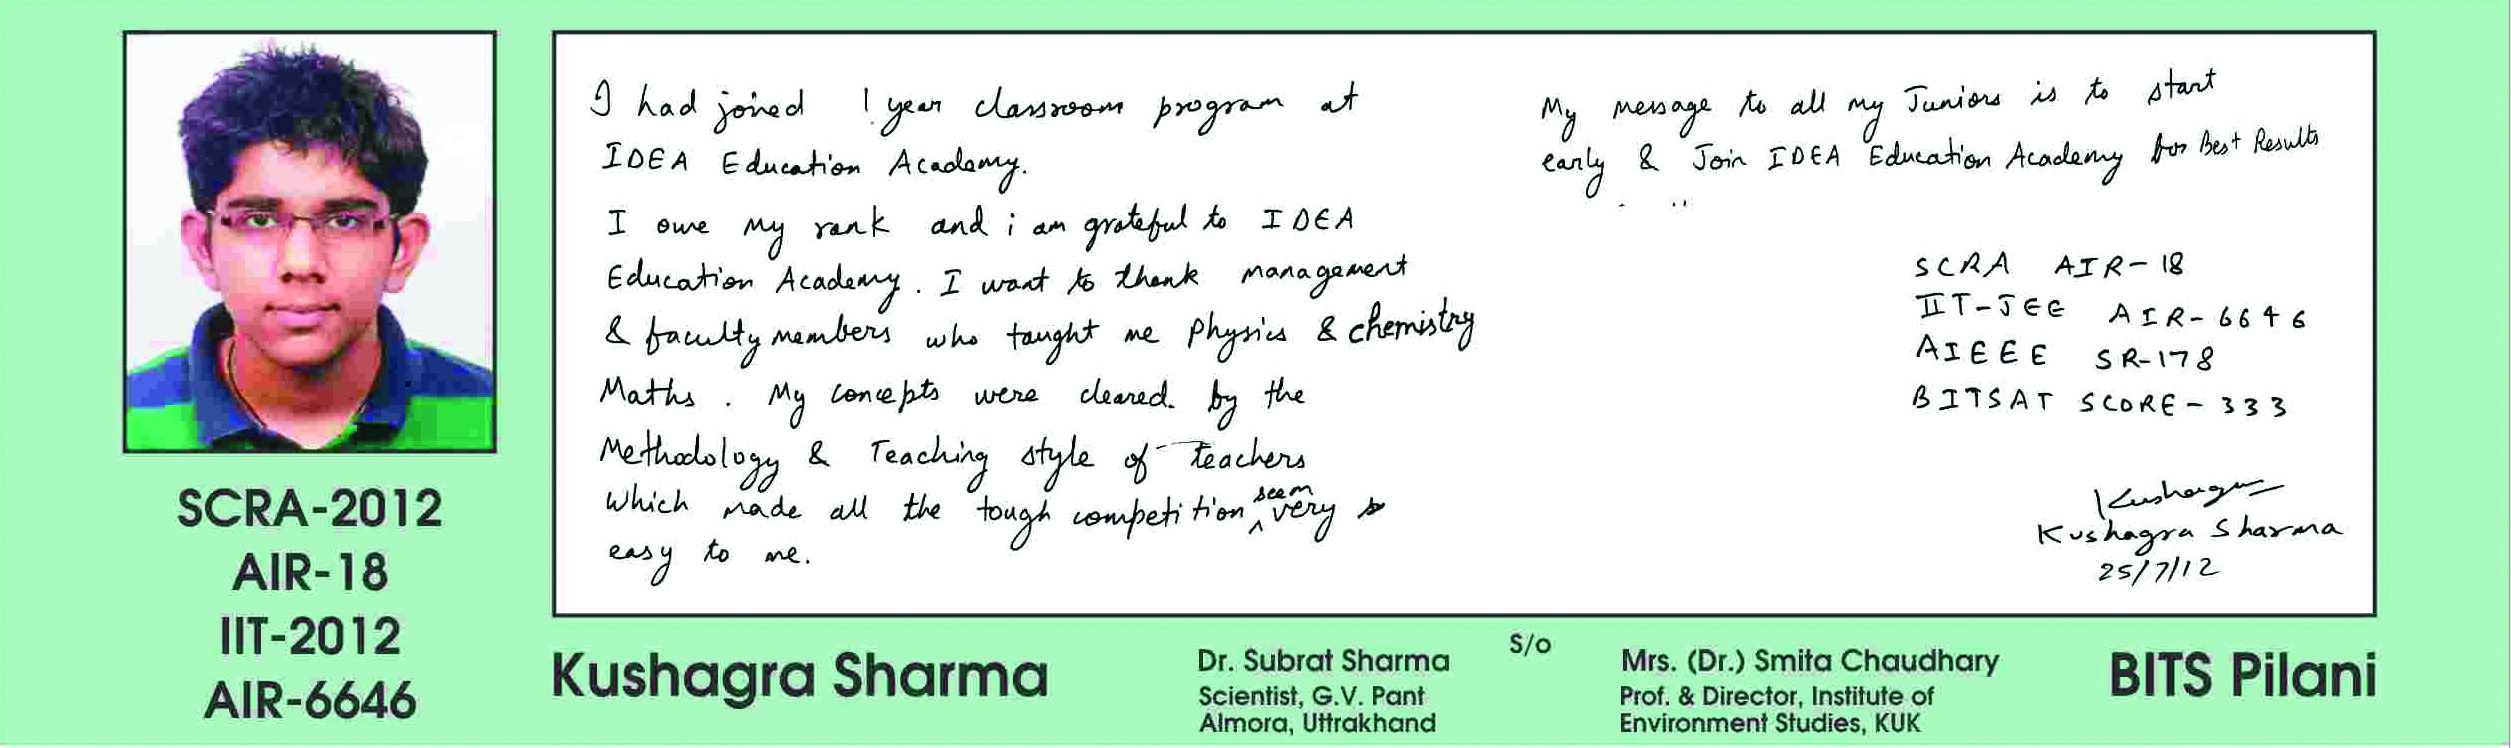 I had joined 1 year classroom program at
IDEA Education Academy.
I owe my rank and i am grateful to IDEA
Education Academy. I want to thank management
& faculty members who taught me Physics & chemistry
Maths. My concepts were cleared by the
Methodology & Teaching style of teachers
which made all the tough competition seem very
easy to me.
My message to all my Juniors is to start
early & Join IDEA Education Academy for Best Results
SCRA AIR-18
IIT-JEE AIR-6646
AIEEE SR-178
BITSAT SCORE-333
Kushagra
Kushagra Sharma
25/7/12
SCRA-2012
AIR-18
IIT-2012
AIR-6646
Kushagra Sharma
Dr. Subrat Sharma
Scientist, G.V. Pant
Almora, Uttrakhand
S/o
Mrs. (Dr.) Smita Chaudhary
Prof. & Director, Institute of
Environment Studies, KUK
BITS Pilani